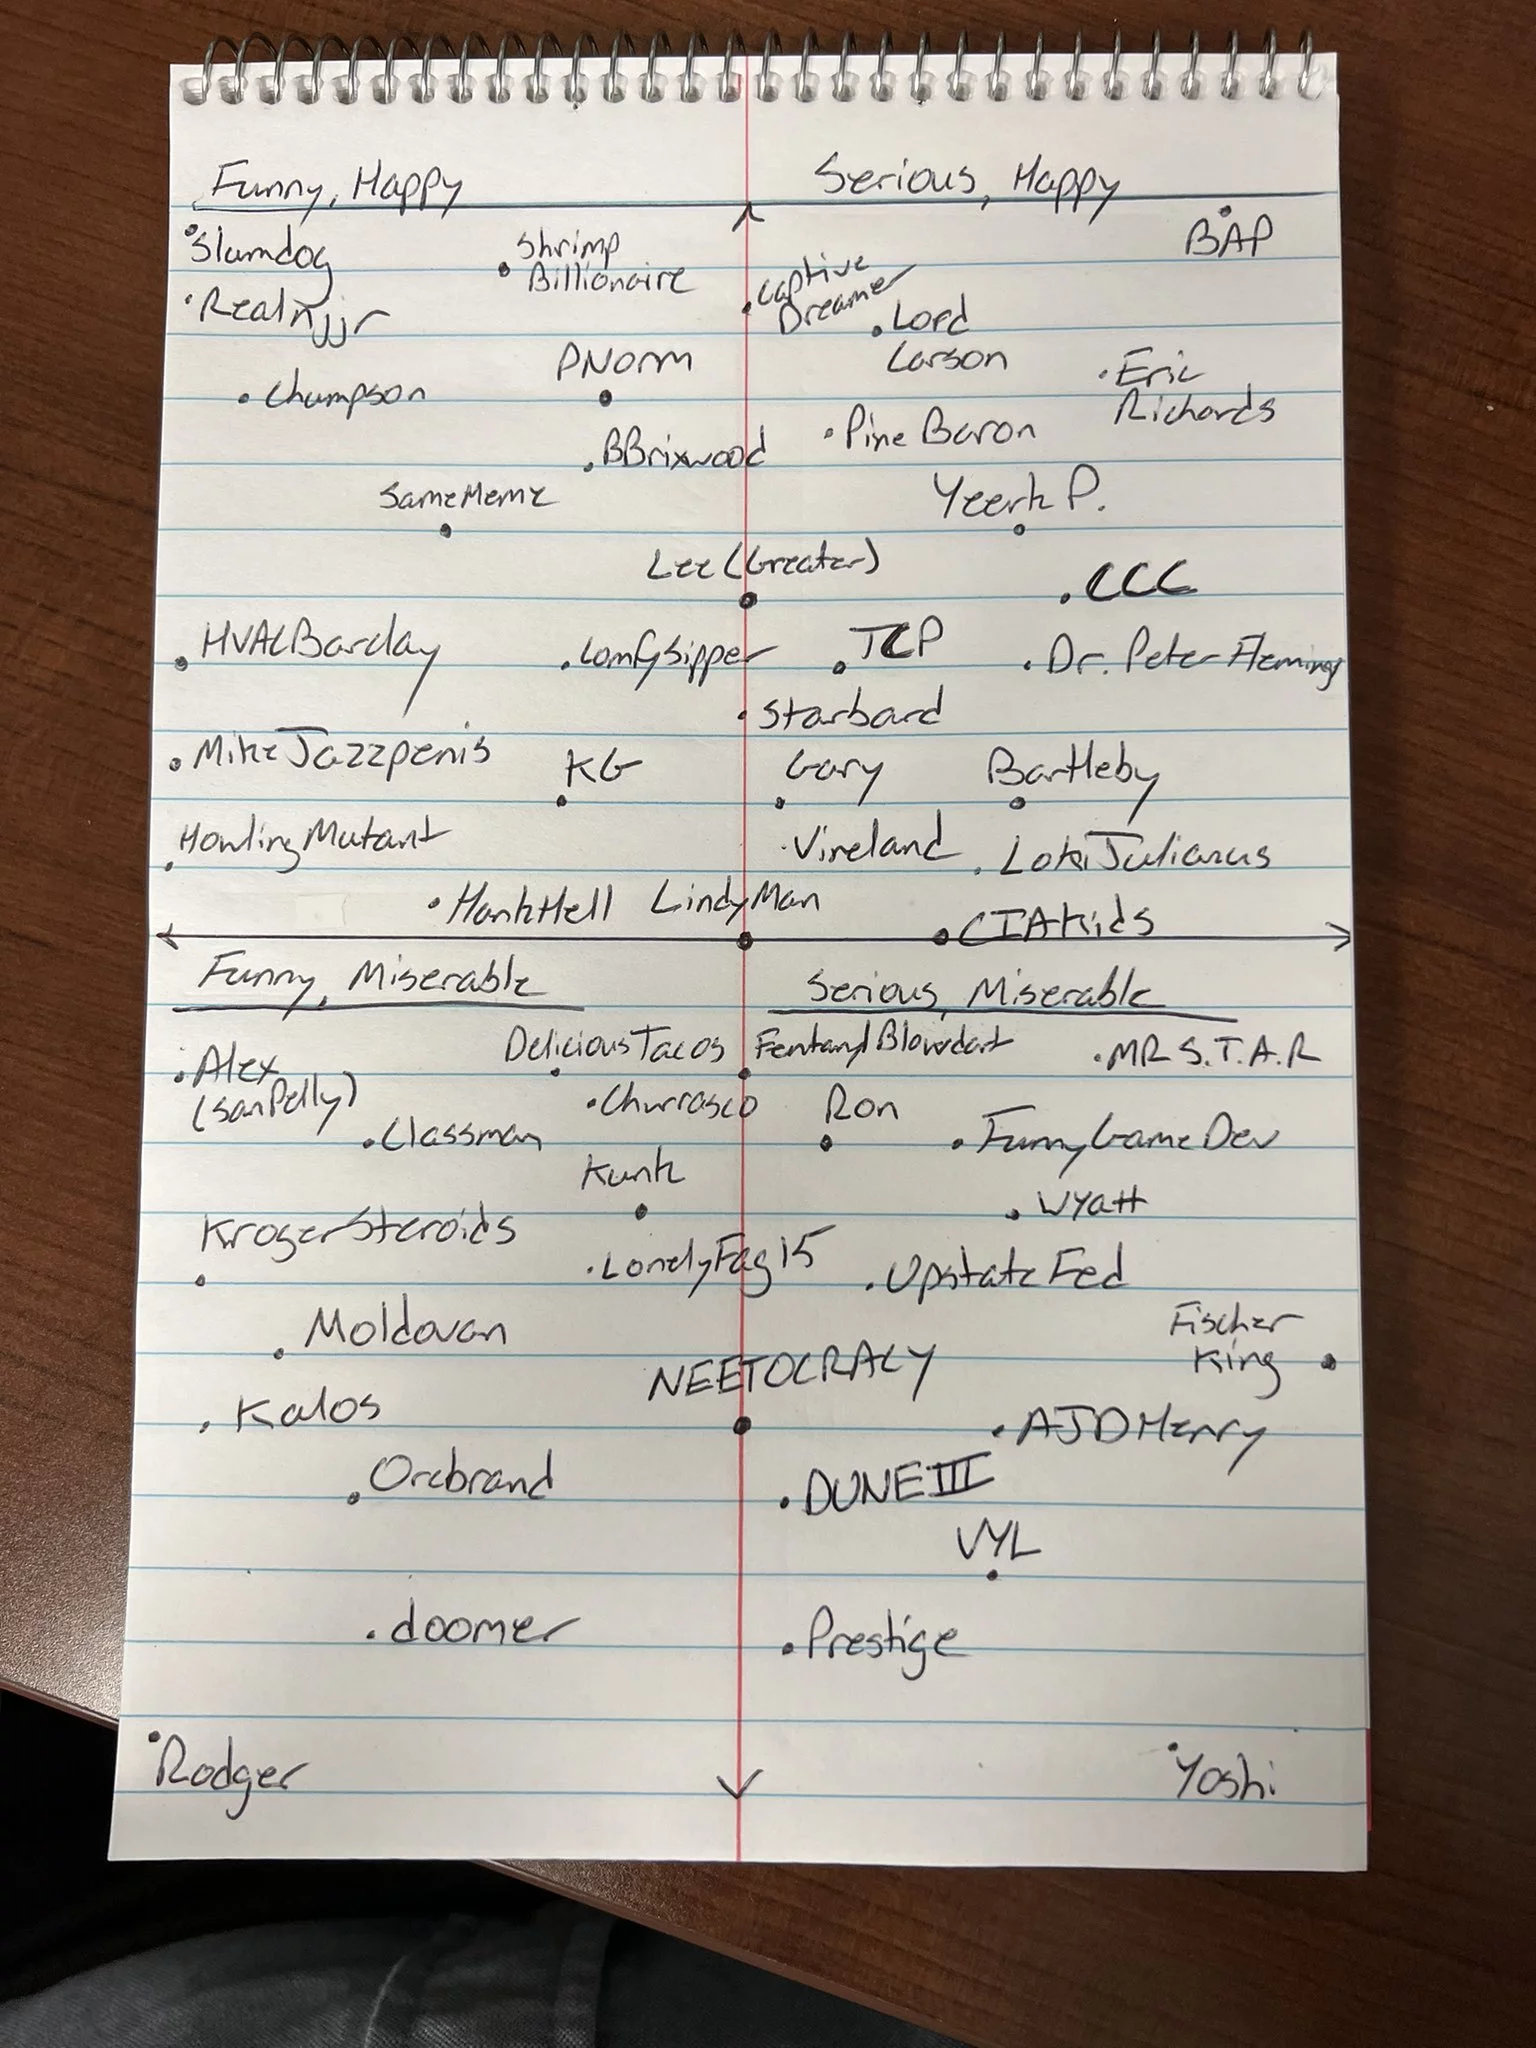 Funny, Happy
Serious, Happy
Slumdog
Shrimp
Billionaire
BAP
Captive
Dreamer
RealNjjr
Lord
Larson
PNorm
Eric
Richards
Champson
Pine Baron
BBrixwood
SameMeme
Yeerk P.
Lee (Greater)
CCC
HVACBarclay
ComfySipper
TCP
Dr. Peter Fleming
Starbard
MikeJazzpenis
KG
Gary
Bartleby
HowlingMutant
Vineland
LokiJulianus
HankHell
LindyMan
CIAKids
Funny, Miserable
Serious, Miserable
DeliciousTacos
FentanylBlowdart
MR S.T.A.R
Alex
(SanPelly)
Churrasco
Ron
Classman
FunnyGameDev
Kunk
Wyatt
KrogerSteroids
LonelyFag15
UpstateFed
Moldovan
Fischer
King
NEETOCRACY
Kalos
AJDHenry
Orebrand
DUNE III
VYL
doomer
Prestige
Rodger
Yoshi